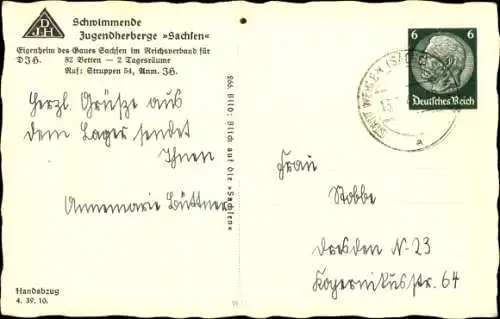 DJH
Schwimmende
Jugendherberge »Sachsen«
Eigenheim des Gaues Sachsen im Reichsverband für
DJH. 82 Betten — 2 Tagesräume
Ruf: Struppen 54, Anm. JH.
Herzl. Grüße aus
dem Lager sendet
Ihnen
Annemarie Büttner
Handabzug
4. 39. 10.
Bild: Blick auf die »Sachsen«
6 6
Deutsches Reich
STADT WEHLEN (SACHS)
13.
a
Frau
Stobbe
Dresden N. 23
Kopernikusstr. 64